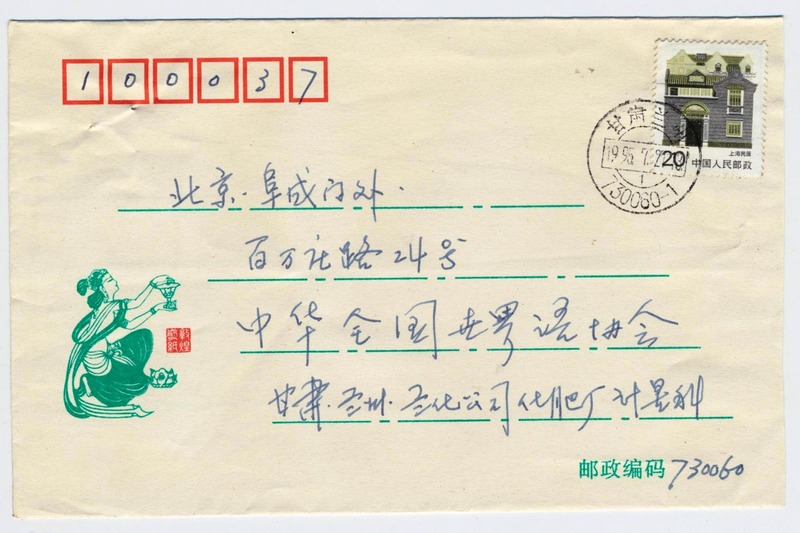 100037
上海民居
20
中国人民邮政
甘肃
730060-1
北京·阜成门外·
百万庄路24号
中华全国世界语协会
敦煌
甘肃·兰州·兰化公司化肥厂计量科
邮政编码 730060